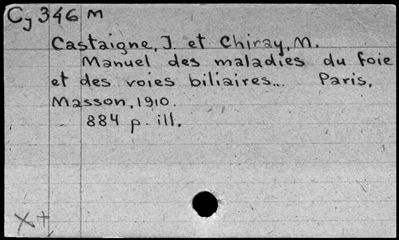 Cj 346 M
Castaigne, J. et Chiray, M.
Manuel des maladies du foie
et des voies biliaires... Paris,
Masson, 1910.
884 p. ill.
X+